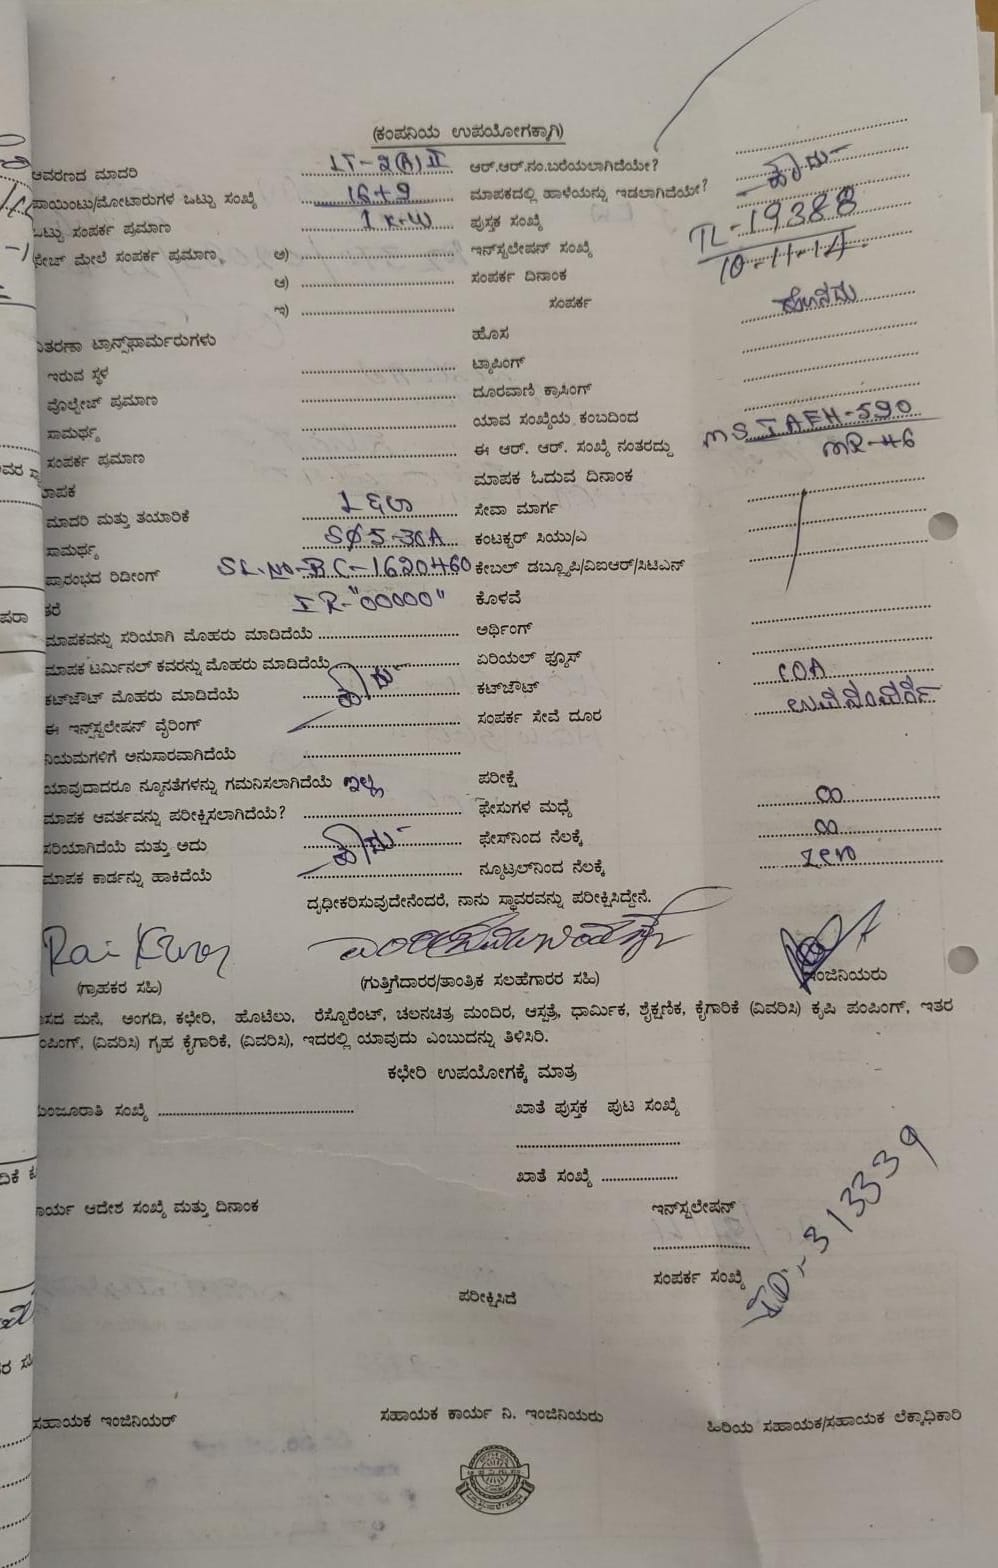 (ಕಂಪನಿಯ ಉಪಯೋಗಕ್ಕಾಗಿ)
ಆವರಣದ ಮಾದರಿ LT-2(A)II ಆರ್.ಆರ್.ನಂ.ಬರೆಯಲಾಗಿದೆಯೇ?
ಪಾಯಿಂಟು/ಮೋಟಾರುಗಳ ಒಟ್ಟು ಸಂಖ್ಯೆ 16+9 ಮಾಪಕದಲ್ಲಿ ಹಾಳೆಯನ್ನು ಇಡಲಾಗಿದೆಯೇ? ಹೌದು
ಒಟ್ಟು ಸಂಪರ್ಕ ಪ್ರಮಾಣ 1 K.W ಪುಸ್ತಕ ಸಂಖ್ಯೆ
ಫೇಜ್ ಮೇಲೆ ಸಂಪರ್ಕ ಪ್ರಮಾಣ ಅ) ಇನ್‌ಸ್ಟಲೇಷನ್ ಸಂಖ್ಯೆ TL-19388
ಆ) ಸಂಪರ್ಕ ದಿನಾಂಕ 10-11-14
ಇ) ಸಂಪರ್ಕ
ವಿತರಣಾ ಟ್ರಾನ್ಸ್‌ಫಾರ್ಮರುಗಳು ಹೊಸ
ಇರುವ ಸ್ಥಳ ಟ್ಯಾಪಿಂಗ್
ವೊಲ್ಟೇಜ್ ಪ್ರಮಾಣ ದೂರವಾಣಿ ಕ್ರಾಸಿಂಗ್
ಸಾಮರ್ಥ್ಯ ಯಾವ ಸಂಖ್ಯೆಯ ಕಂಬದಿಂದ
ಸಂಪರ್ಕ ಪ್ರಮಾಣ ಈ ಆರ್. ಆರ್. ಸಂಖ್ಯೆ ನಂತರದ್ದು MSIAEH-590
ಮಾಪಕ ಮಾಪಕ ಓದುವ ದಿನಾಂಕ MR-46
ಮಾದರಿ ಮತ್ತು ತಯಾರಿಕೆ L&G ಸೇವಾ ಮಾರ್ಗ
ಸಾಮರ್ಥ್ಯ SØ 5-30A ಕಂಟಕ್ಟರ್ ಸಿಯು/ಎ
ಪ್ರಾರಂಭದ ರಿಡೀಂಗ್ SL.No-BC-1620460 ಕೇಬಲ್ ಡಬ್ಲ್ಯೂಪಿ/ವಿಐಆರ್/ಸಿಟಿಎನ್
ತರೆ IR-"00000" ಕೊಳವೆ
ಮಾಪಕವನ್ನು ಸರಿಯಾಗಿ ಮೊಹರು ಮಾಡಿದೆಯೆ ಅರ್ಥಿಂಗ್
ಮಾಪಕ ಟರ್ಮಿನಲ್ ಕವರನ್ನು ಮೊಹರು ಮಾಡಿದೆಯೆ ಏರಿಯಲ್ ಫ್ಯೂಸ್
ಕಟ್‌ಔಟ್ ಮೊಹರು ಮಾಡಿದೆಯೆ ಹೌದು ಕಟ್‌ಔಟ್ COA
ಈ ಇನ್ಸ್‌ಸ್ಟಲೇಷನ್ ವೈರಿಂಗ್ ಸಂಪರ್ಕ ಸೇವೆ ದೂರ
ನಿಯಮಗಳಿಗೆ ಅನುಸಾರವಾಗಿದೆಯೆ
ಯಾವುದಾದರೂ ನ್ಯೂನತೆಗಳನ್ನು ಗಮನಿಸಲಾಗಿದೆಯೆ ಇಲ್ಲ ಪರೀಕ್ಷೆ
ಮಾಪಕ ಆವರ್ತವನ್ನು ಪರೀಕ್ಷಿಸಲಾಗಿದೆಯೆ? ಫೇಸುಗಳ ಮಧ್ಯೆ ∞
ಸರಿಯಾಗಿದೆಯೆ ಮತ್ತು ಅದು ಹೌದು ಫೇಸ್‌ನಿಂದ ನೆಲಕ್ಕೆ ∞
ಮಾಪಕ ಕಾರ್ಡನ್ನು ಹಾಕಿದೆಯೆ ನ್ಯೂಟ್ರಲ್‌ನಿಂದ ನೆಲಕ್ಕೆ zero
ದೃಢೀಕರಿಸುವುದೇನೆಂದರೆ, ನಾನು ಸ್ಥಾವರವನ್ನು ಪರೀಕ್ಷಿಸಿದ್ದೇನೆ.
(ಗ್ರಾಹಕರ ಸಹಿ) (ಗುತ್ತಿಗೆದಾರರ/ತಾಂತ್ರಿಕ ಸಲಹೆಗಾರರ ಸಹಿ) ಇಂಜಿನಿಯರು
ವಾಸದ ಮನೆ, ಅಂಗಡಿ, ಕಛೇರಿ, ಹೊಟೆಲು, ರೆಸ್ಟೊರೆಂಟ್, ಚಲನಚಿತ್ರ ಮಂದಿರ, ಆಸ್ಪತ್ರೆ, ಧಾರ್ಮಿಕ, ಶೈಕ್ಷಣಿಕ, ಕೈಗಾರಿಕೆ (ವಿವರಿಸಿ) ಕೃಷಿ ಪಂಪಿಂಗ್, ಇತರ
ಪಂಪಿಂಗ್, (ವಿವರಿಸಿ) ಗೃಹ ಕೈಗಾರಿಕೆ, (ವಿವರಿಸಿ), ಇದರಲ್ಲಿ ಯಾವುದು ಎಂಬುದನ್ನು ತಿಳಿಸಿರಿ.
ಕಛೇರಿ ಉಪಯೋಗಕ್ಕೆ ಮಾತ್ರ
ಮಂಜೂರಾತಿ ಸಂಖ್ಯೆ ಖಾತೆ ಪುಸ್ತಕ ಪುಟ ಸಂಖ್ಯೆ
ಖಾತೆ ಸಂಖ್ಯೆ
ಕಾರ್ಯ ಆದೇಶ ಸಂಖ್ಯೆ ಮತ್ತು ದಿನಾಂಕ ಇನ್‌ಸ್ಟಲೇಷನ್
ಸಂಪರ್ಕ ಸಂಖ್ಯೆ
ID:-313339
ಪರೀಕ್ಷಿಸಿದೆ
ಸಹಾಯಕ ಇಂಜಿನಿಯರ್ ಸಹಾಯಕ ಕಾರ್ಯ ನಿ. ಇಂಜಿನಿಯರು ಹಿರಿಯ ಸಹಾಯಕ/ಸಹಾಯಕ ಲೆಕ್ಕಾಧಿಕಾರಿ